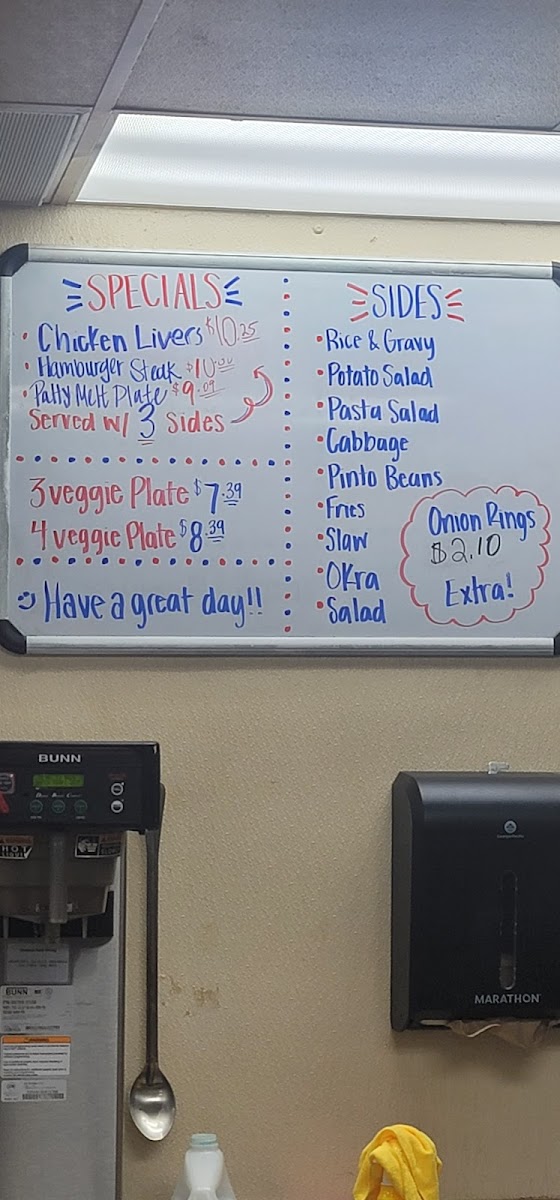 SPECIALS
• Chicken Livers $10.25
• Hamburger Steak $10.00
• Patty Melt Plate $9.09
Served w/ 3 Sides
3 veggie Plate $7.39
4 veggie Plate $8.39
Have a great day!!
SIDES
• Rice & Gravy
• Potato Salad
• Pasta Salad
• Cabbage
• Pinto Beans
• Fries
• Slaw
• Okra
• Salad
Onion Rings
$2.10
Extra!
BUNN
HOT
BUNN
WARNING
MARATHON